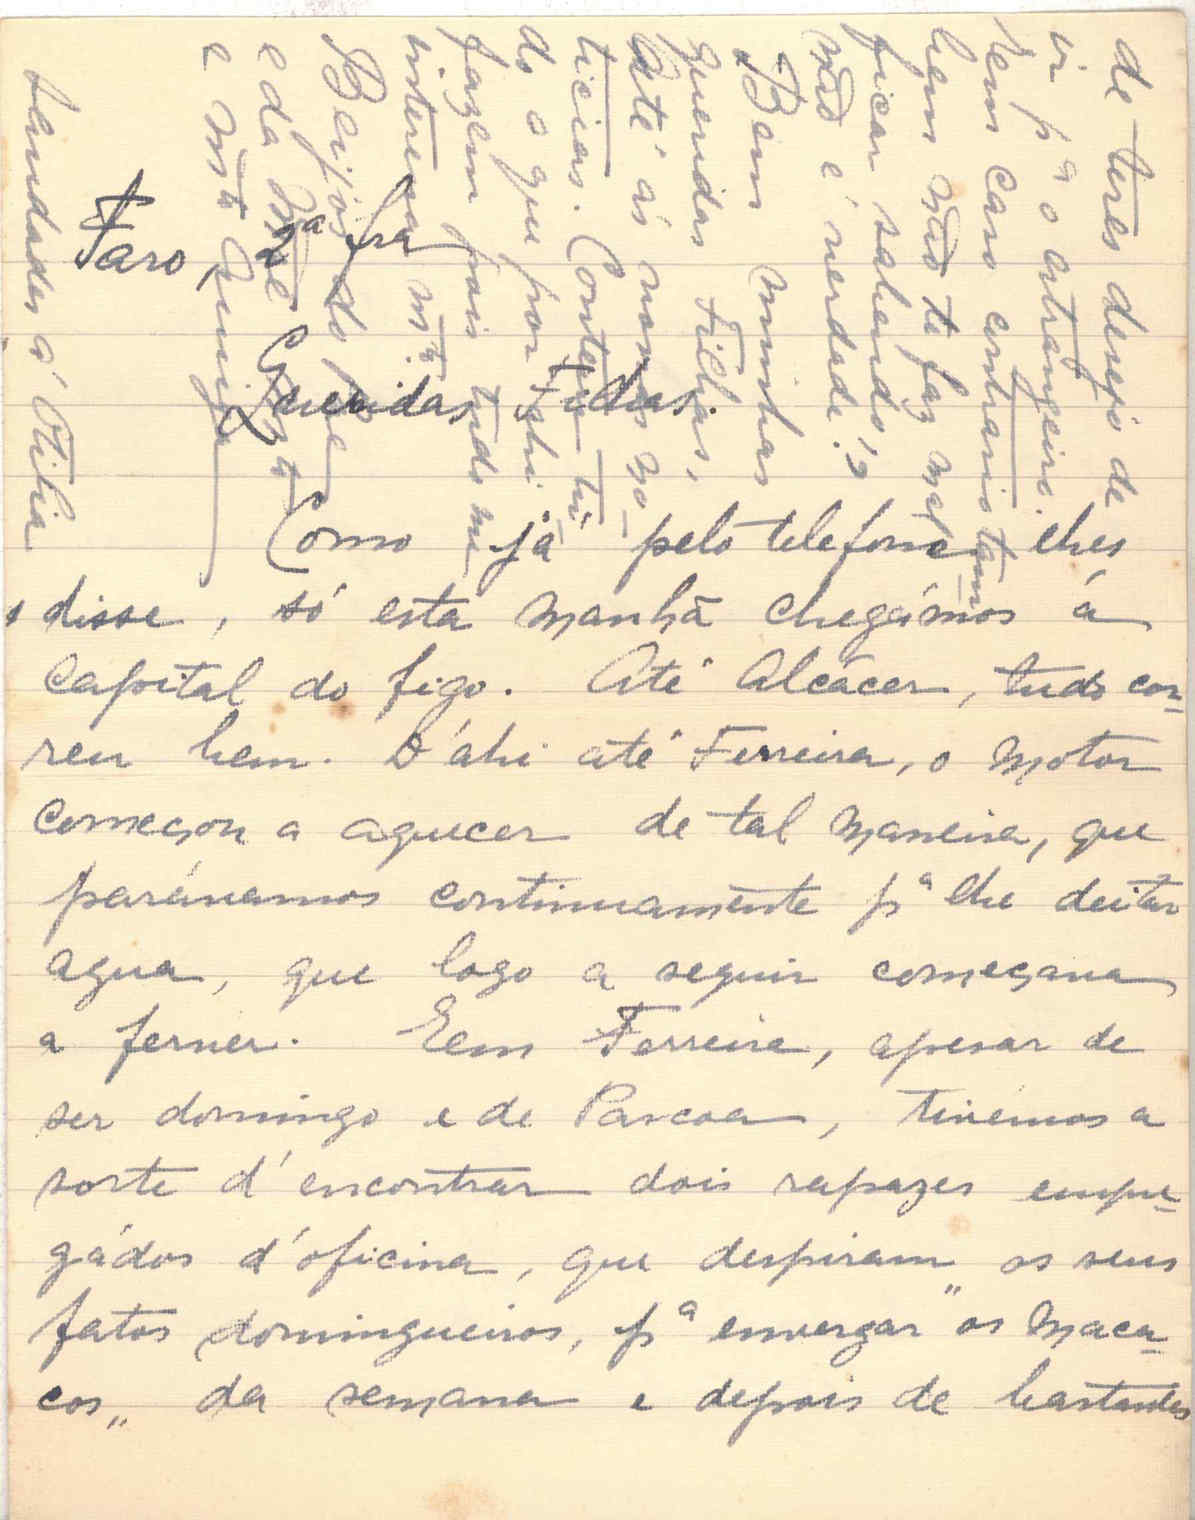 Faro, 2ª fra
Queridas Filhas.
Como já pelo telefone lhes
disse, só esta manhã chegámos á
Capital do figo. Até Alcácer, tudo cor-
reu bem. D'ahi até Ferreira, o motor
começou a aquecer de tal maneira, que
parávamos continuamente pª lhe deitar
agua, que logo a seguir começava
a ferver. Em Ferreira, apesar de
ser domingo e de Pascoa, tivémos a
sorte d'encontrar dois rapazes empre-
gádos d'oficina, que despiram os seus
fatos domingueiros, pª envergar "os maca-
cos" da semana e depois de bastantes
de teres desejo de
vir pª o estrangeiro.
Nem caso contrario tam-
bem não te faz mal
ficar sabendo o
não é verdade?
Bem minhas
queridas Filhas,
Até ás novas no-
ticias. Contem tu-
do o que por ahi
fazem pois tudo me
interessa mto.
Beijos do Pae
e da Mãe
e mto Amiga
Saudades á Otilia